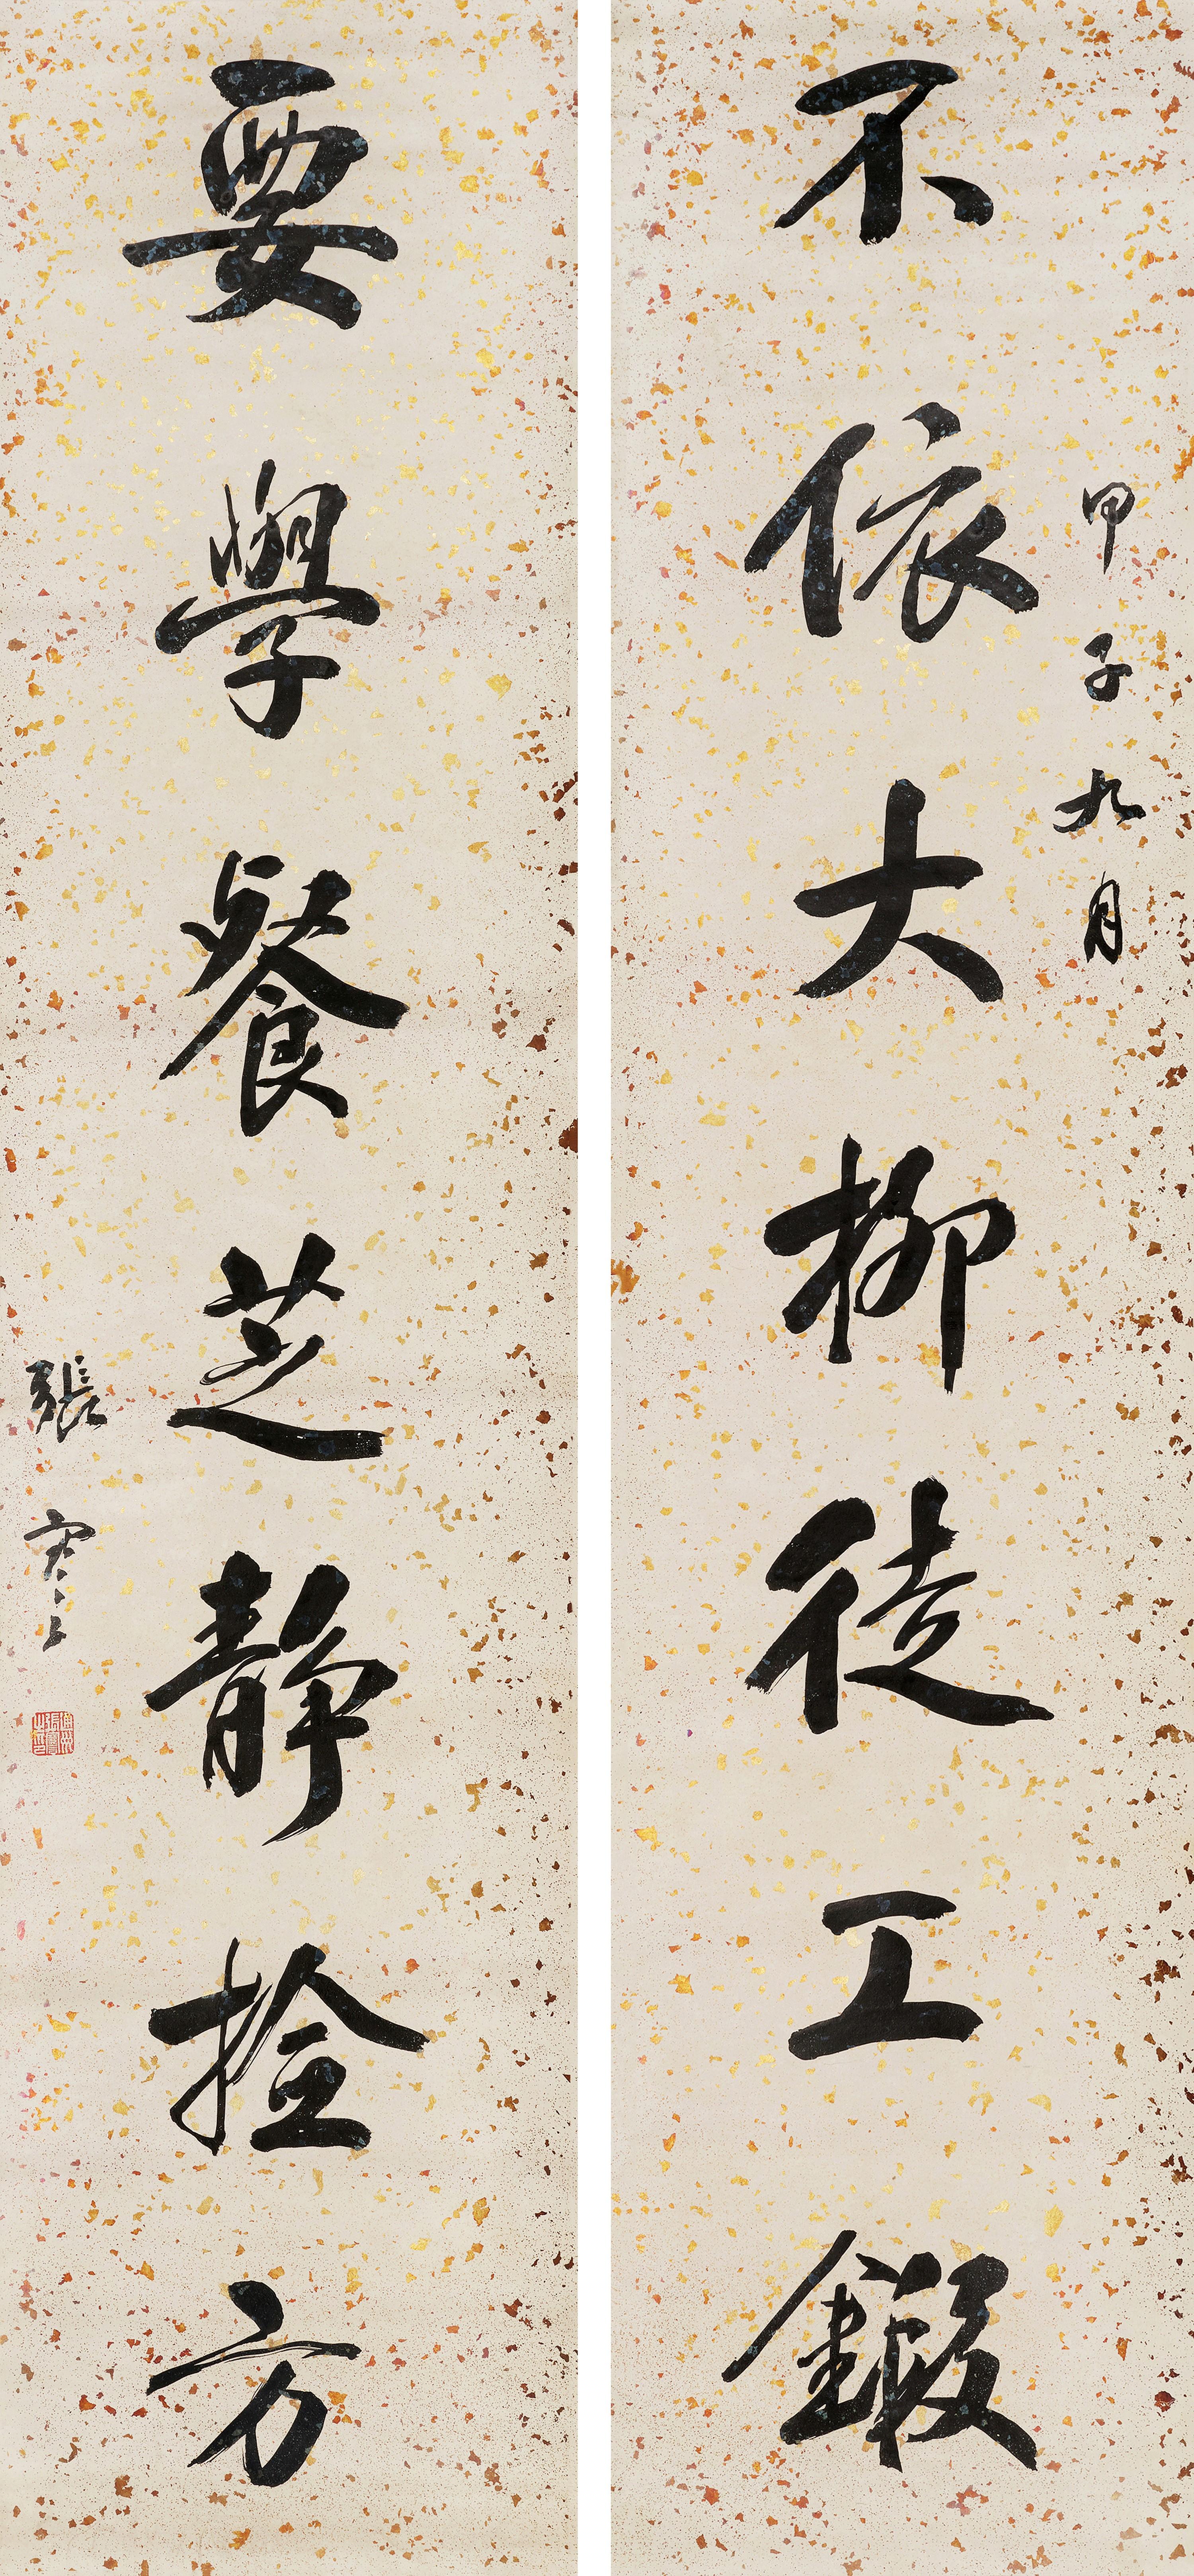 不依大柳徒工鍛
甲子九月
要學餐芝靜撿方
張謇